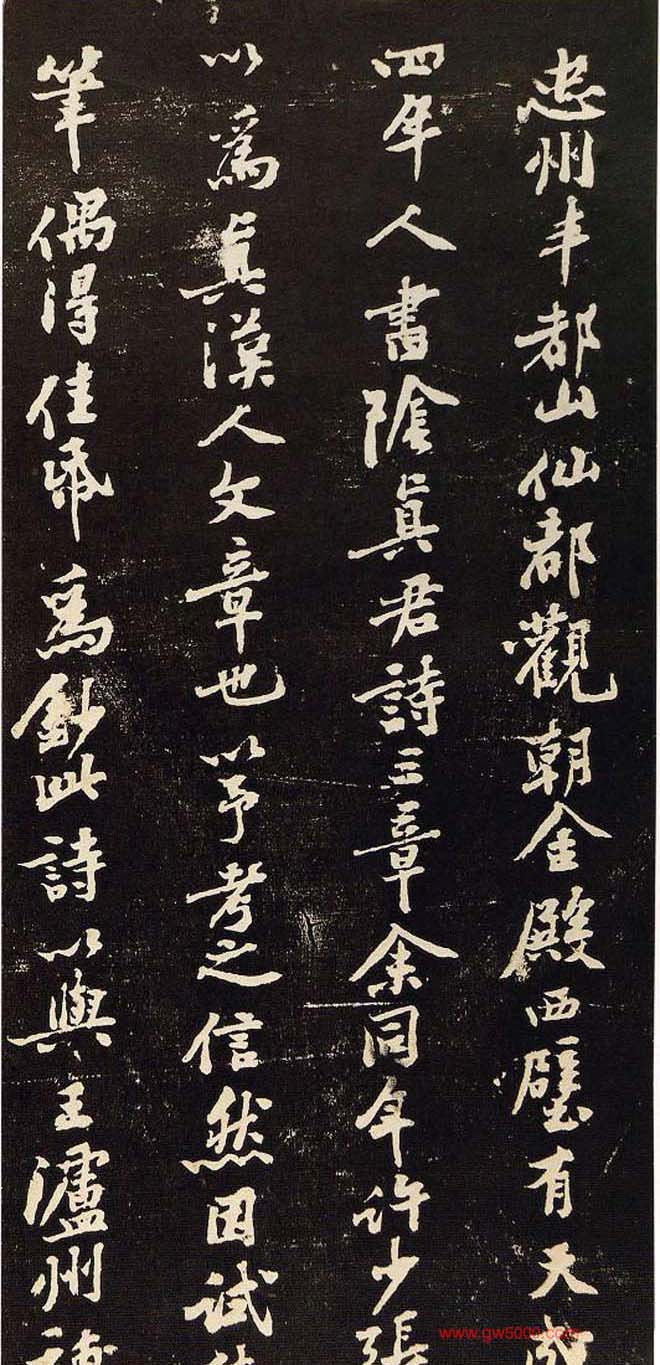 忠州丰都山仙都觀朝金殿西壁有天成
四年人書陰真君詩三章余同年許少張
以爲真漢人文章也以予考之信然因試
筆偶得佳紙爲鈔此詩以與王瀘州
www.gw5000.com